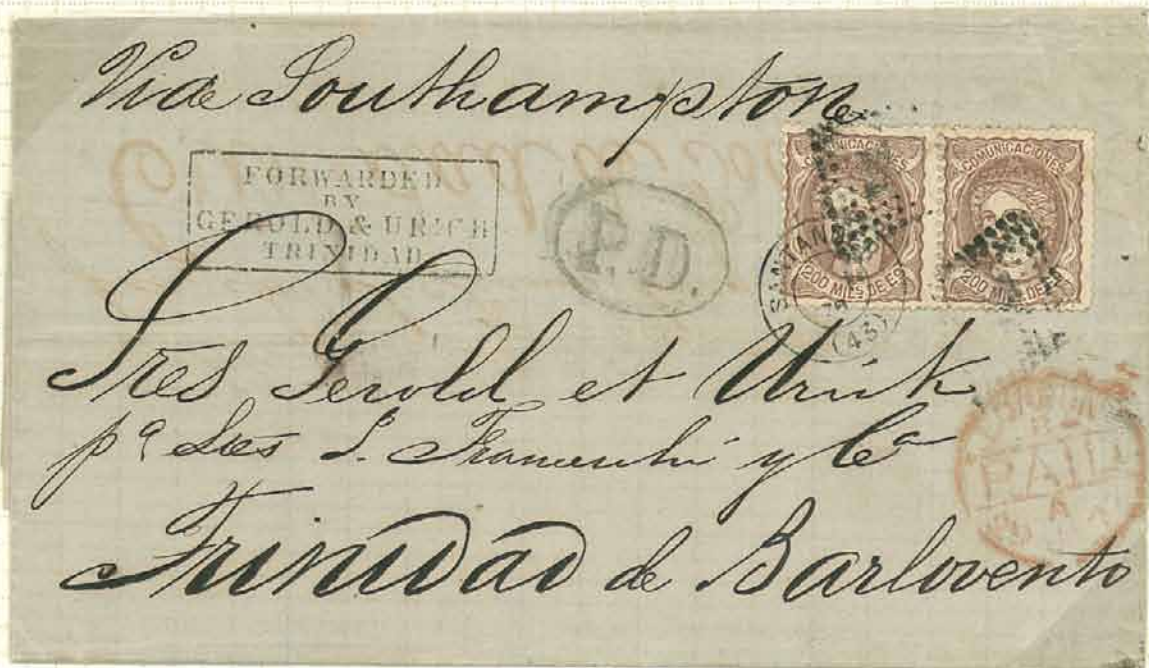 Via Southampton
FORWARDED
BY
GEROLD & URICH
TRINIDAD
P.D.
COMUNICACIONES
200 MILS DE EO
COMUNICACIONES
200 MILS DE EO
SANTANDER
(43)
Sres Gerold et Urich
pa Sres S. y Ca
Trinidad de Barlovento
PAID